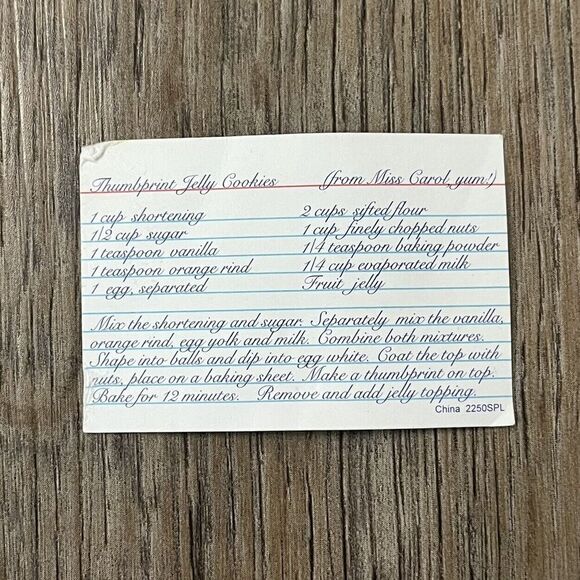 Thumbprint Jelly Cookies (from Miss Carol, yum!)
1 cup shortening 2 cups sifted flour
1/2 cup sugar 1 cup finely chopped nuts
1 teaspoon vanilla 1/4 teaspoon baking powder
1 teaspoon orange rind 1/4 cup evaporated milk
1 egg, separated Fruit jelly
Mix the shortening and sugar. Separately mix the vanilla,
orange rind, egg yolk and milk. Combine both mixtures.
Shape into balls and dip into egg white. Coat the top with
nuts, place on a baking sheet. Make a thumbprint on top.
Bake for 12 minutes. Remove and add jelly topping.
China 2250SPL